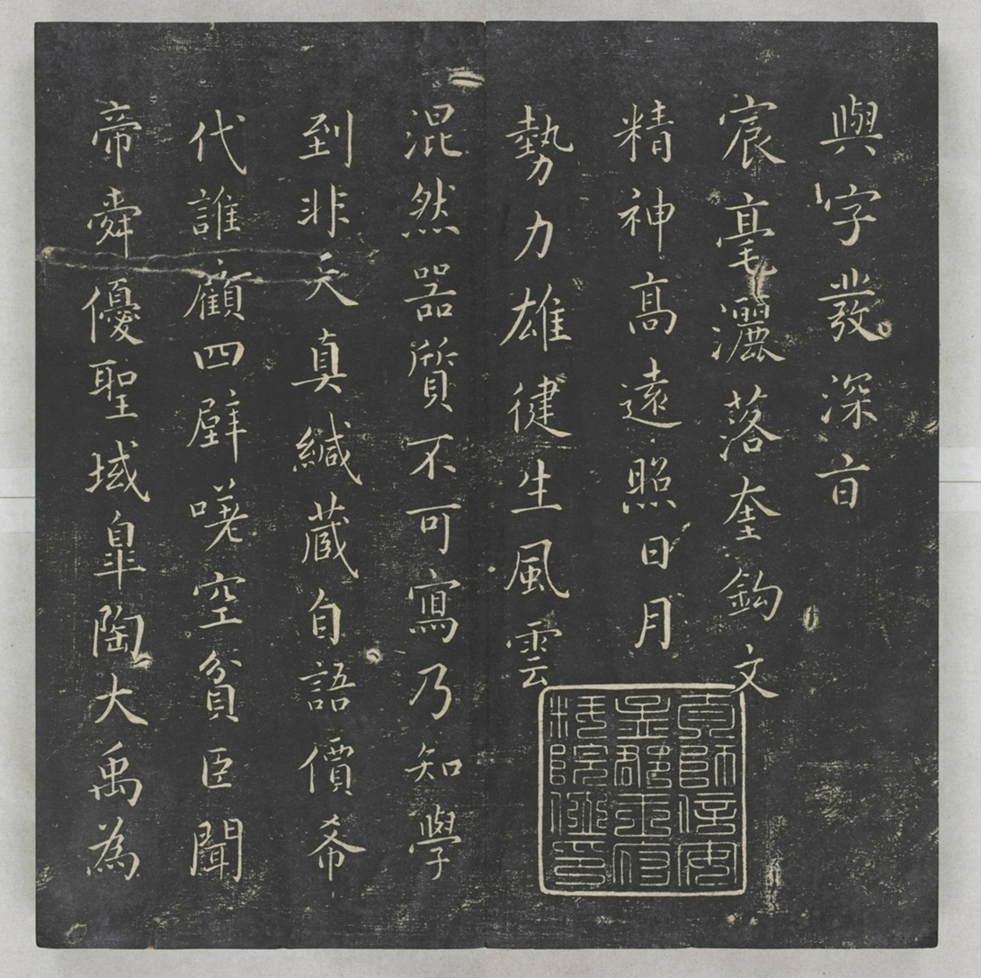 與字發深亩
宸毫灑落奎鈎文
精神高遠照日月
勢力雄健生風雲
混然器質不可寫乃知學
到非天真緘藏自語價希
代誰顧四壁嘆空貧臣聞
帝舜優聖域臯陶大禹為